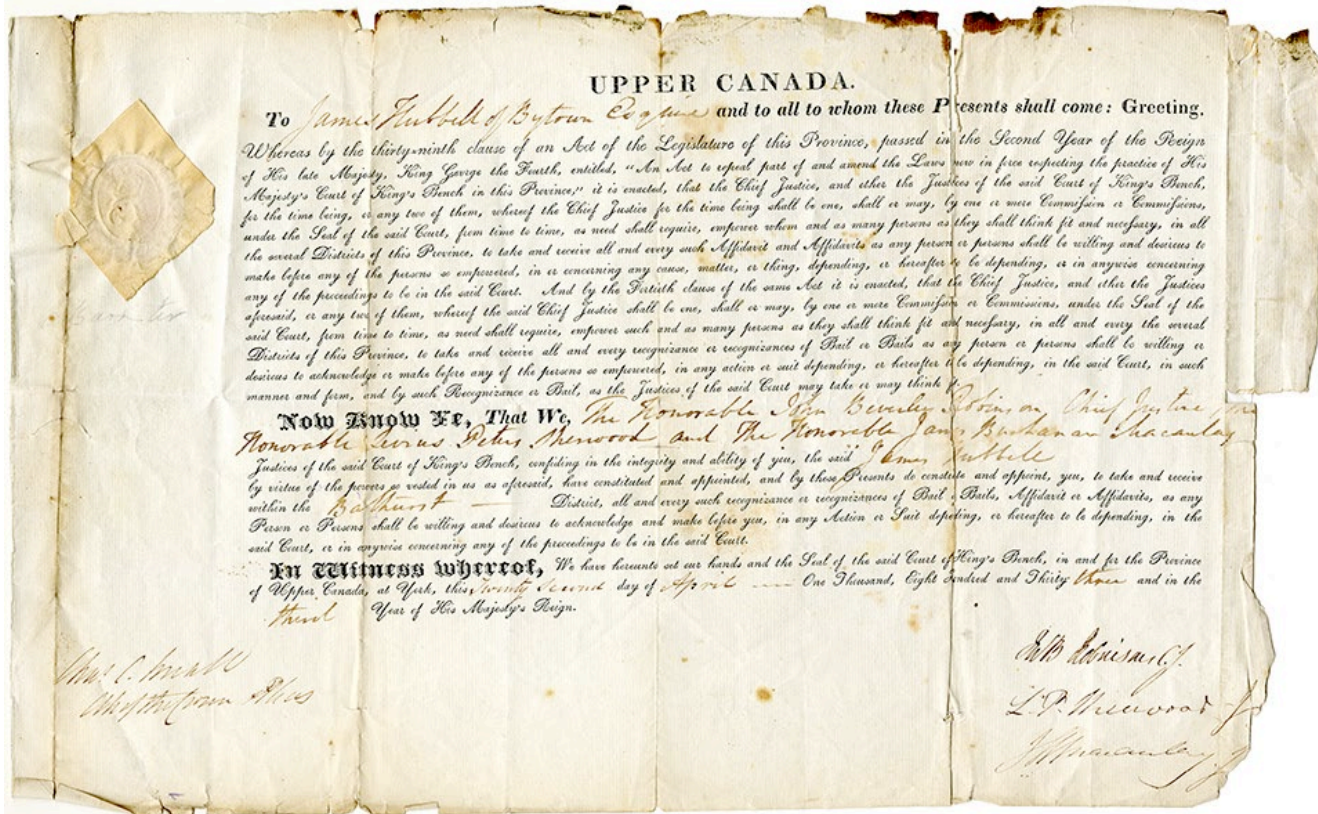 UPPER CANADA.
To James Hubbell of Bytown Esquire and to all to whom these Presents shall come: Greeting.
Whereas by the thirty-ninth clause of an Act of the Legislature of this Province, passed in the Second Year of the Reign
of His late Majesty, King George the Fourth, entitled, "An Act to repeal part of and amend the Laws now in force respecting the practice of His
Majesty's Court of King's Bench in this Province," it is enacted, that the Chief Justice, and other the Justices of the said Court of King's Bench,
for the time being, or any two of them, whereof the Chief Justice for the time being shall be one, shall or may, by one or more Commission or Commissions,
under the Seal of the said Court, from time to time, as need shall require, empower whom and as many persons as they shall think fit and necessary, in all
the several Districts of this Province, to take and receive all and every such Affidavit and Affidavits as any person or persons shall be willing and desirous to
make before any of the persons so empowered, in or concerning any cause, matter, or thing, depending, or hereafter to be depending, or in anywise concerning
any of the proceedings to be in the said Court. And by the Fortieth clause of the same Act it is enacted, that the Chief Justice, and other the Justices
aforesaid, or any two of them, whereof the said Chief Justice shall be one, shall or may, by one or more Commission or Commissions, under the Seal of the
said Court, from time to time, as need shall require, empower such and as many persons as they shall think fit and necessary, in all and every the several
Districts of this Province, to take and receive all and every recognizance or recognizances of Bail or Bails as any person or persons shall be willing or
desirous to acknowledge or make before any of the persons so empowered, in any action or suit depending, or hereafter to be depending, in the said Court, in such
manner and form, and by such Recognizance or Bail, as the Justices of the said Court may take or may think fit.
Now Know Ye, That We, The Honorable John Beverley Robinson, Chief Justice The
Honorable Levius Peters Sherwood and The Honorable James Buchanan Macaulay
Justices of the said Court of King's Bench, confiding in the integrity and ability of you, the said James Hubbell
by virtue of the powers so vested in us as aforesaid, have constituted and appointed, and by these Presents do constitute and appoint, you, to take and receive
within the Bathurst — District, all and every such recognizance or recognizances of Bail or Bails, Affidavit or Affidavits, as any
Person or Persons shall be willing and desirous to acknowledge and make before you, in any Action or Suit depending, or hereafter to be depending, in the
said Court, or in anywise concerning any of the proceedings to be in the said Court.
In Witness whereof, We have hereunto set our hands and the Seal of the said Court of King's Bench, in and for the Province
of Upper Canada, at York, this Twenty Second day of April — One Thousand, Eight Hundred and Thirty three and in the
third Year of His Majesty's Reign.
Jno B Robinson C.J.
Chas C. Small
Clk of the Crown & Pleas
L. P. Sherwood J.
J B Macaulay J